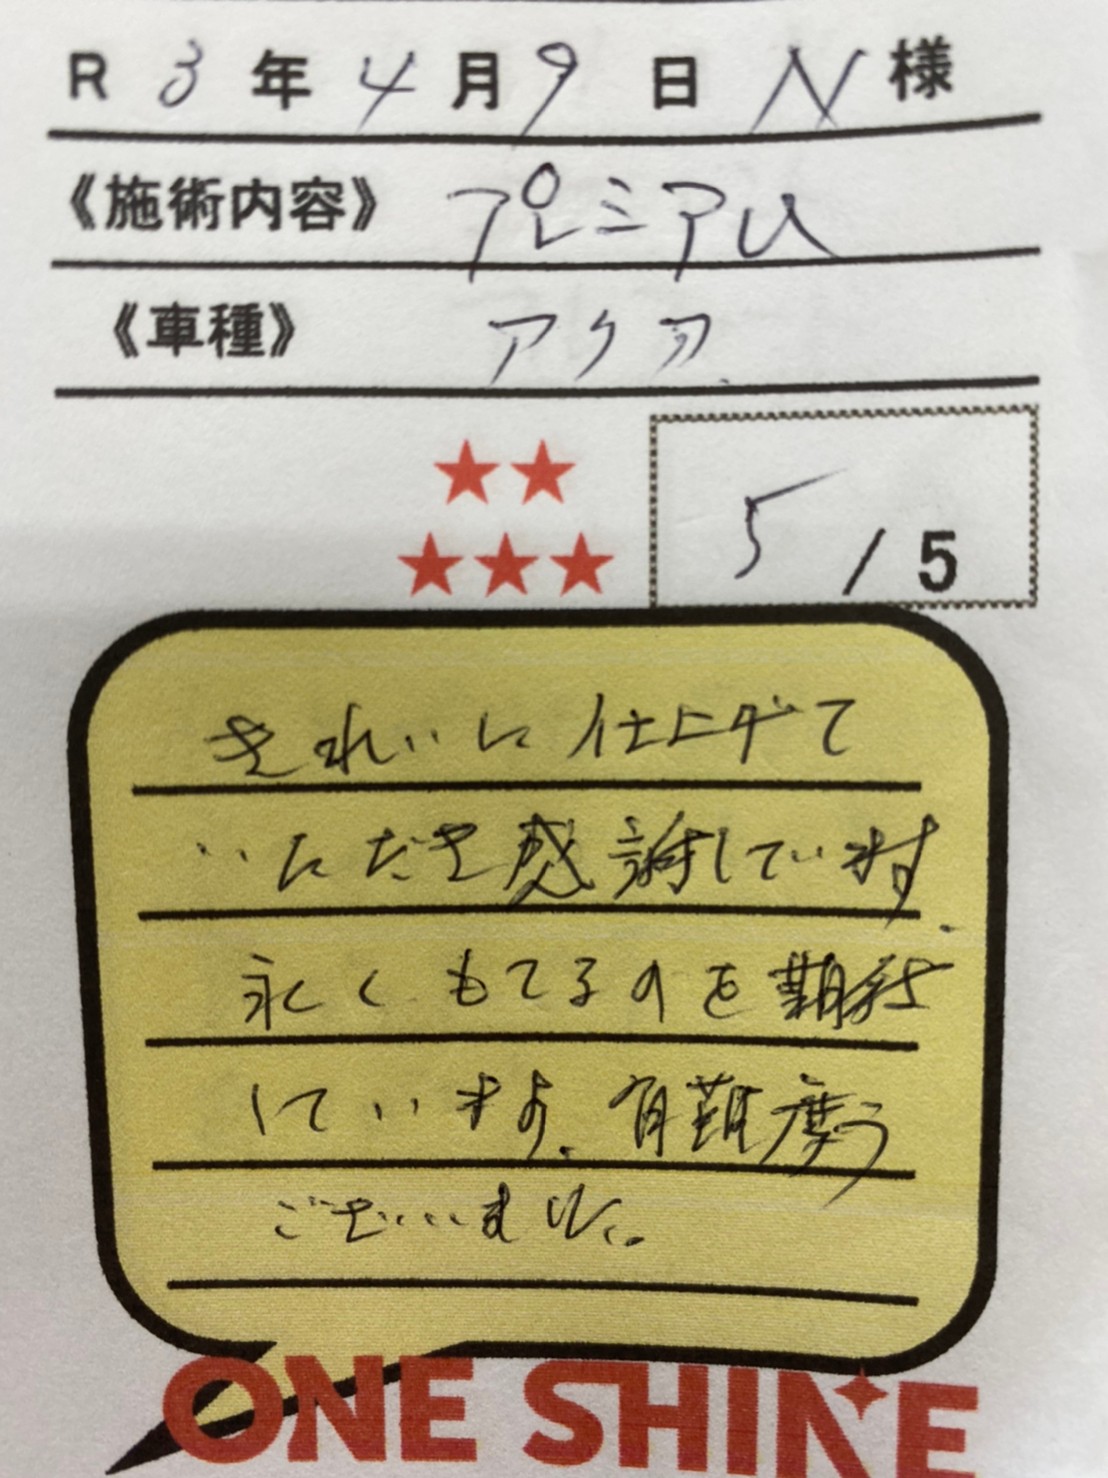 R 3 年 4 月 9 日 N 様
《施術内容》 プレミアム
《車種》 アクア
5 / 5
きれいに仕上げて
いただき感謝しています.
永くもてるのを期待
しています. 有難度う
ございました。
ONE SHINE